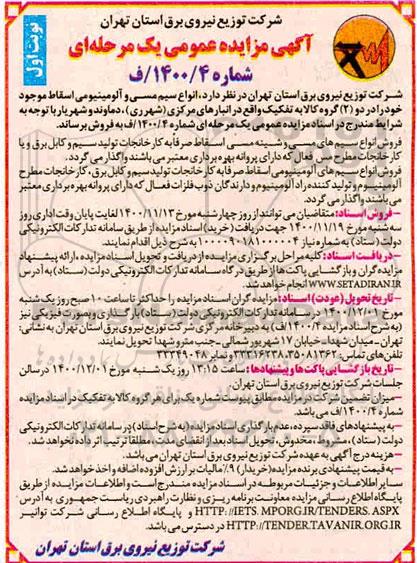 شرکت توزیع نیروی برق استان تهران
نوبت اول
آگهی مزایده عمومی یک مرحله‌ای
شماره ۱۴۰۰/۴/ف
شرکت توزیع نیروی برق استان تهران در نظر دارد، انواع سیم مسی و آلومینیومی اسقاط موجود
خود را در دو (۲) گروه کالا به تفکیک واقع در انبارهای مرکزی (شهرری)، دماوند و شهریار با توجه به
شرایط مندرج در اسناد مزایده عمومی یک مرحله ای شماره ۱۴۰۰/۴/ف به فروش برساند.
فروش انواع سیم های مسی و شینه مسی اسقاط صرفا به کارخانجات تولید سیم و کابل برق و یا
کارخانجات مطرح مس فعال که دارای پروانه بهره برداری معتبر می باشند واگذار می گردد.
فروش انواع سیم های آلومینیومی اسقاط صرفا به کارخانجات تولید سیم و کابل برق، کارخانجات مطرح
آلومینیوم و تولید کننده راد آلومینیوم و دارندگان ذوب فلزات فعال که دارای پروانه بهره برداری معتبر
می باشند واگذار می گردد.
-فروش اسناد: متقاضیان می توانند از روز چهارشنبه مورخ ۱۴۰۰/۱۱/۱۳ لغایت پایان وقت اداری روز
سه شنبه مورخ ۱۴۰۰/۱۱/۱۹ جهت دریافت (خرید) اسناد مزایده از طریق سامانه تدارکات الکترونیکی
دولت (ستاد) به شماره نیاز به شرح ذیل اقدام نمایند.
-دریافت اسناد: کلیه مراحل برگزاری مزایده از دریافت و تحویل اسناد مزایده، ارائه پیشنهاد
مزایده گران و بازگشایی پاکت ها از طریق درگاه سامانه تدارکات الکترونیکی دولت (ستاد) به آدرس
WWW.SETADIRAN.IR انجام خواهد شد.
-تاریخ تحویل (عودت) اسناد: مزایده گران اسناد مزایده را حداکثر تا ساعت ۱۰ صبح روز یک شنبه
مورخ ۱۴۰۰/۱۲/۰۱ در سامانه تدارکات الکترونیکی دولت (ستاد) بارگذاری و بصورت فیزیکی نیز
(به شرح اسناد مزایده ۱۴۰۰/۴/ف) به دبیرخانه مرکزی شرکت توزیع نیروی برق استان تهران به نشانی:
تهران- میدان شهدا- خیابان ۱۷ شهریور شمالی- جنب مترو شهدا تحویل نمایند.
تلفن های تماس: ۳۵۰۸۱۳۶۲-۳۳۳۱۶۲۳۸ و نمابر ۳۳۳۴۹۰۴۸
-تاریخ بازگشایی پاکت ها و پیشنهادها: ساعت ۱۳:۱۵ روز یک شنبه مورخ ۱۴۰۰/۱۲/۰۱ در سالن
جلسات شرکت توزیع نیروی برق استان تهران.
-میزان تضمین شرکت در مزایده مطابق پیوست شماره یک برای هر گروه کالا به تفکیک در اسناد مزایده
شماره ۱۴۰۰/۴/ف می باشد.
-به پیشنهادهای فاقد سپرده، عدم بارگذاری اسناد مزایده (به شرح اسناد) در سامانه تدارکات الکترونیکی
دولت (ستاد)، مشروط، مخدوش، تحویل اسناد بعد از انقضای مدت، مطلقا ترتیب اثر داده نخواهد شد.
-هزینه درج آگهی به عهده شرکت توزیع نیروی برق استان تهران می باشد.
-به قیمت پیشنهادی برنده مزایده (خریدار) ۹٪ مالیات بر ارزش افزوده اضافه و اخذ خواهد شد.
سایر اطلاعات و جزئیات مربوطه در اسناد مزایده مندرج است و اطلاعات مزایده از طریق
پایگاه اطلاع رسانی مزایده معاونت برنامه ریزی و نظارت راهبردی ریاست جمهوری به آدرس
HTTP://IETS.MPORG.IR/TENDERS.ASPX و پایگاه اطلاع رسانی شرکت توانیر
HTTP://TENDER.TAVANIR.ORG.IR در دسترس می باشد.
شرکت توزیع نیروی برق استان تهران